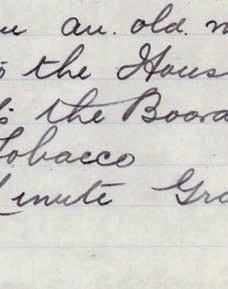 an old
the Hous
the Board
Tobacco
inute Gra